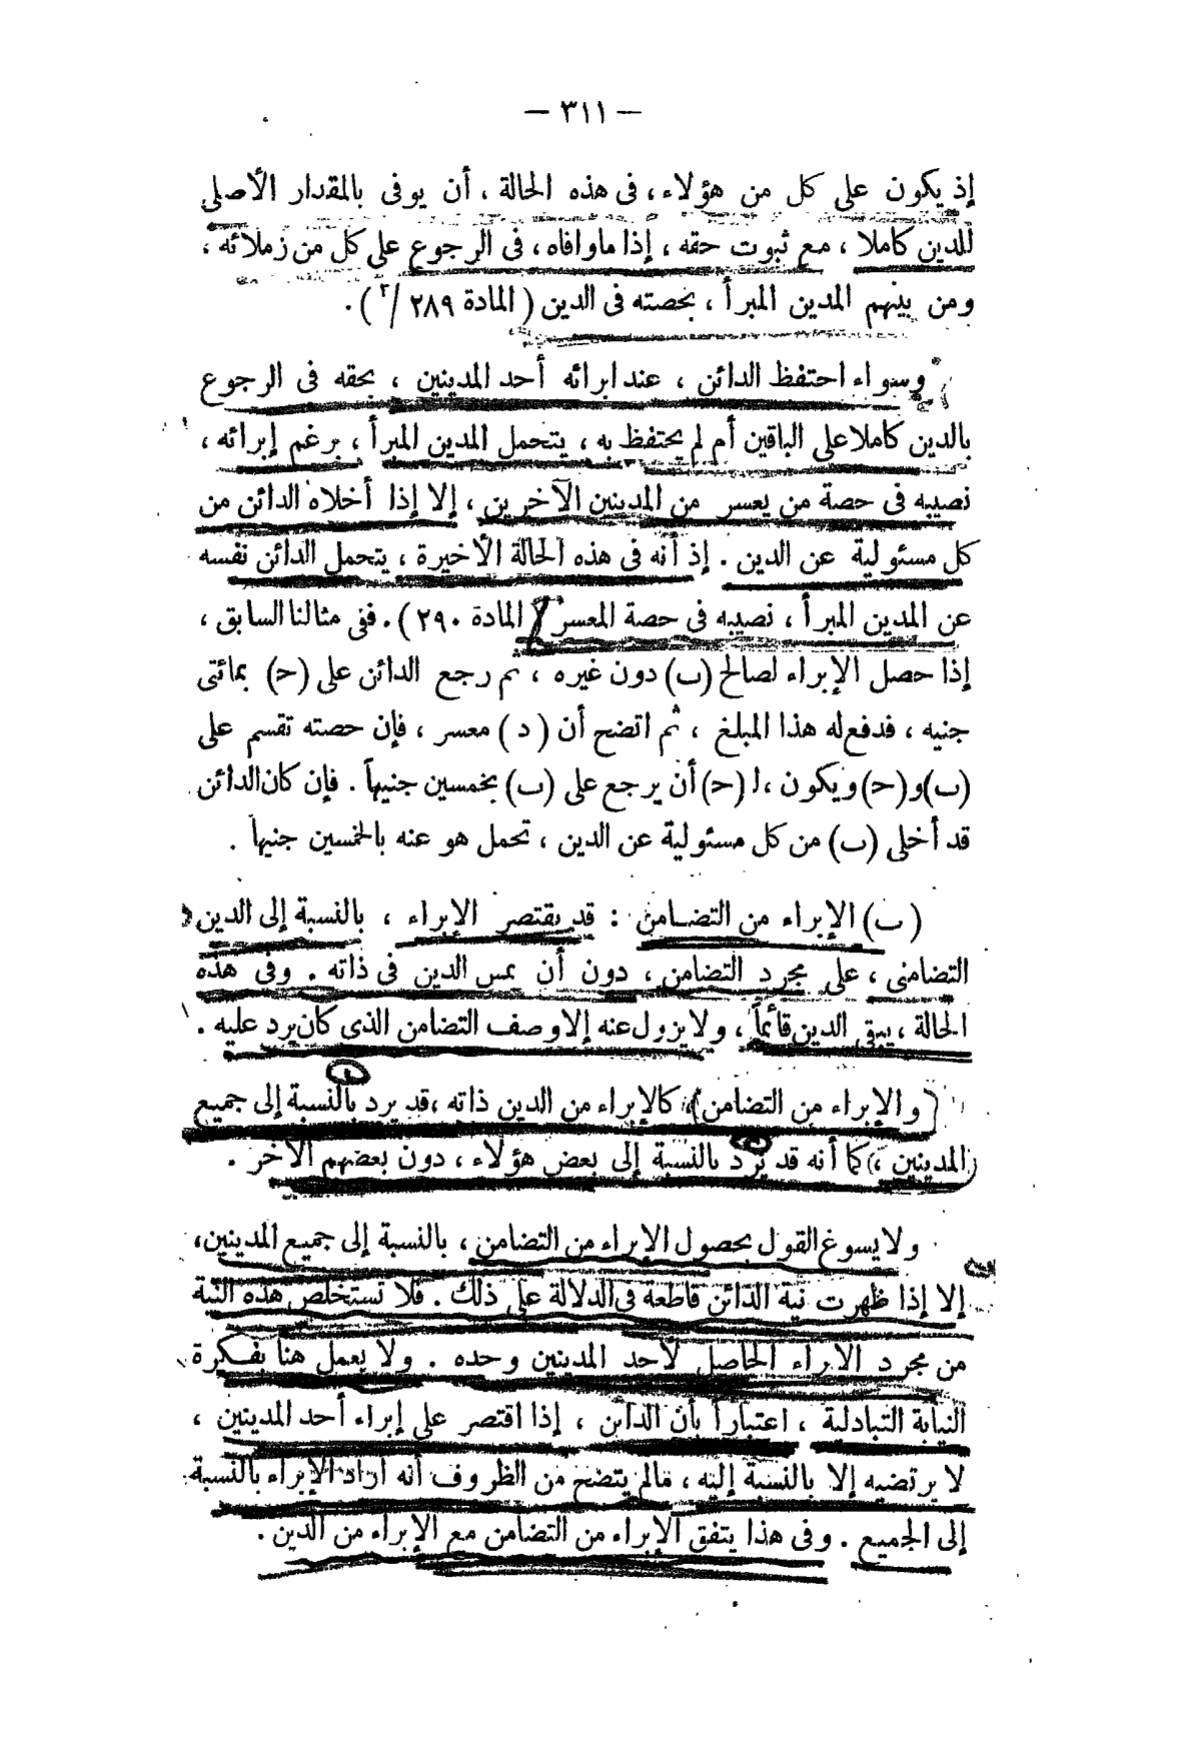 — ٣١١ —
إذ يكون على كل من هؤلاء، فى هذه الحالة ، أن يوفى بالمقدار الأصلى
للدين كاملا ، مع ثبوت حقه ، إذا ماوافاه، فى الرجوع على كل من زملائه ،
ومن بينهم المدين المبرأ ، بحصته فى الدين ( المادة ٢٨٩ /٢) .
وسواء احتفظ الدائن ، عند ابرائه أحد المدينين ، بحقه فى الرجوع
بالدين كاملا على الباقين أم لم يحتفظ به ، يتحمل المدين المبرأ ، برغم إبرائه ،
نصيبه فى حصة من يعسر من المدينين الآخرين ، إلا إذا أخلاه الدائن من
كل مسئولية عن الدين . إذ أنه فى هذه الحالة الأخيرة ، يتحمل الدائن نفسه
عن المدين المبرأ ، نصيبه فى حصة المعسر ( المادة ٢٩٠ ) . ففى مثالنا السابق ،
إذا حصل الإبراء لصالح (ب) دون غيره ، ثم رجع الدائن على (حـ) بمائتى
جنيه ، فدفع له هذا المبلغ ، ثم اتضح أن ( د ) معسر ، فإن حصته تقسم على
(ب) و (حـ) ويكون ، لـ (حـ) أن يرجع على (ب) بخمسين جنيهاً . فإن كان الدائن
قد أخلى (ب) من كل مسئولية عن الدين ، تحمل هو عنه بالخمسين جنيهاً .
( ب ) الإبراء من التضامن : قد يقتصر الإبراء ، بالنسبة إلى الدين
التضامنى ، على مجرد التضامن ، دون أن يمس الدين فى ذاته . وفى هذه
الحالة ، يبقى الدين قائماً ، ولا يزول عنه إلا وصف التضامن الذى كان يرد عليه .
والإبراء من التضامن ، كالإبراء من الدين ذاته ، قد يرد بالنسبة إلى جميع
المدينين ، كما أنه قد يرد بالنسبة إلى بعض هؤلاء ، دون بعضهم الآخر .
ولا يسوغ القول بحصول الإبراء من التضامن ، بالنسبة إلى جميع المدينين ،
إلا إذا ظهرت نية الدائن قاطعة فى الدلالة على ذلك . فلا تستخلص هذه النية
من مجرد الابراء الحاصل لأحد المدينين وحده . ولا يعمل هنا بفكرة
النيابة التبادلية ، اعتباراً بأن الدائن ، إذا اقتصر على إبراء أحد المدينين ،
لا يرتضيه إلا بالنسبة إليه ، مالم يتضح من الظروف أنه أراد الإبراء بالنسبة
إلى الجميع . وفى هذا يتفق الإبراء من التضامن مع الإبراء من الدين .